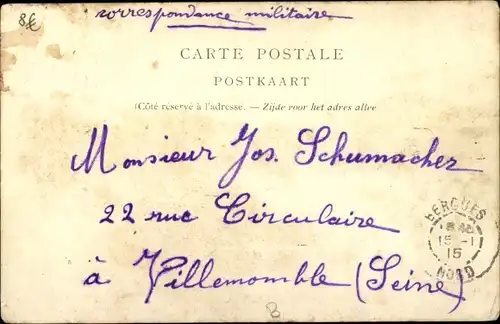 8€
correspondance militaire
CARTE POSTALE
POSTKAART
(Côté réservé à l'adresse. — Zijde voor het adres allee
Monsieur Jos. Schumacher
22 rue Circulaire
à Villemomble (Seine)
BERGUES
15 -1
15
NORD
B